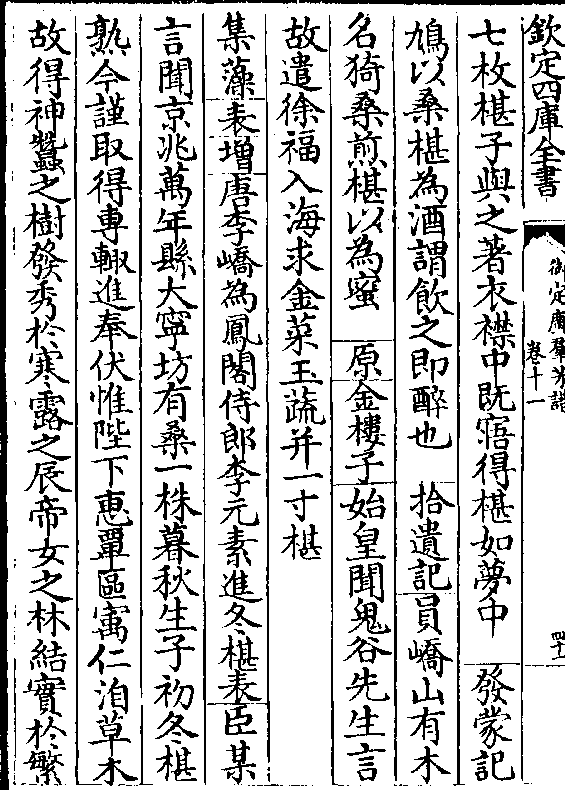 欽定四庫全書
御定廣羣芳譜
卷十一
四十二
七枚椹子與之著衣襟中既寤得椹如夢中　發蒙記
鳩以桑椹為酒謂飲之即醉也　拾遺記員嶠山有木
名猗桑煎椹以為蜜　原金樓子始皇聞鬼谷先生言
故遣徐福入海求金菜玉蔬并一寸椹
集藻表增唐李嶠為鳳閣侍郎李元素進冬椹表臣某
言聞京兆萬年縣大寧坊有桑一株暮秋生子初冬椹
熟今謹取得專輙進奉伏惟陛下惠覃區㝢仁洎草木
故得神蠶之樹發秀於寒露之辰帝女之林結實於繁